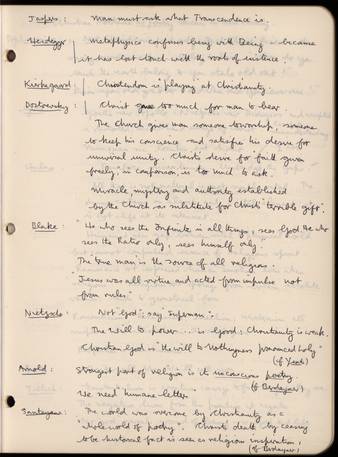 Jaspers: Man must ask what Transcendence is.
Heidegger metaphysics confuses being with Being – because
it has lost touch with the roots of existence.
Kierkegaard Christendom is "playing" at Christianity
Dostoevsky: Christ gave too much for man to bear
The Church gives man someone to worship, someone
to keep his conscience and satisfies his desire for
universal unity. Christ's desire for faith given
freely, in comparison, is too much to ask.
Miracle, mystery and authority established
by the Church as substitute for Christ's "terrible gift".
Blake: "He who sees the Infinite in all things, sees God. He who
sees the Ratio only, sees himself only"
The true man is the source of all religion
"Jesus was all virtue and acted from impulse not
from rules."
Nietzsche Not "God"; say Superman".
The will to power ... is Good; Christianity is weak.
Christian God is "the will to Nothingness pronounced holy"
Arnold: Strongest part of religion is its unconscious poetry
(cf Berdyaev)
We need "humane letters"
Santayana: The world was overcome by Christianity as a
"whole world of poetry". Christ's death by ceasing
to be historical fact is seen as religious inspiration,
(cf Berdyaev)